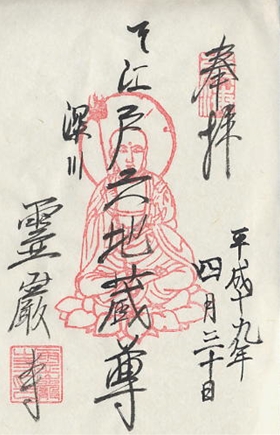 奉拝
平成十九年
四月三十日
江戸六地蔵尊
深川
霊巌寺